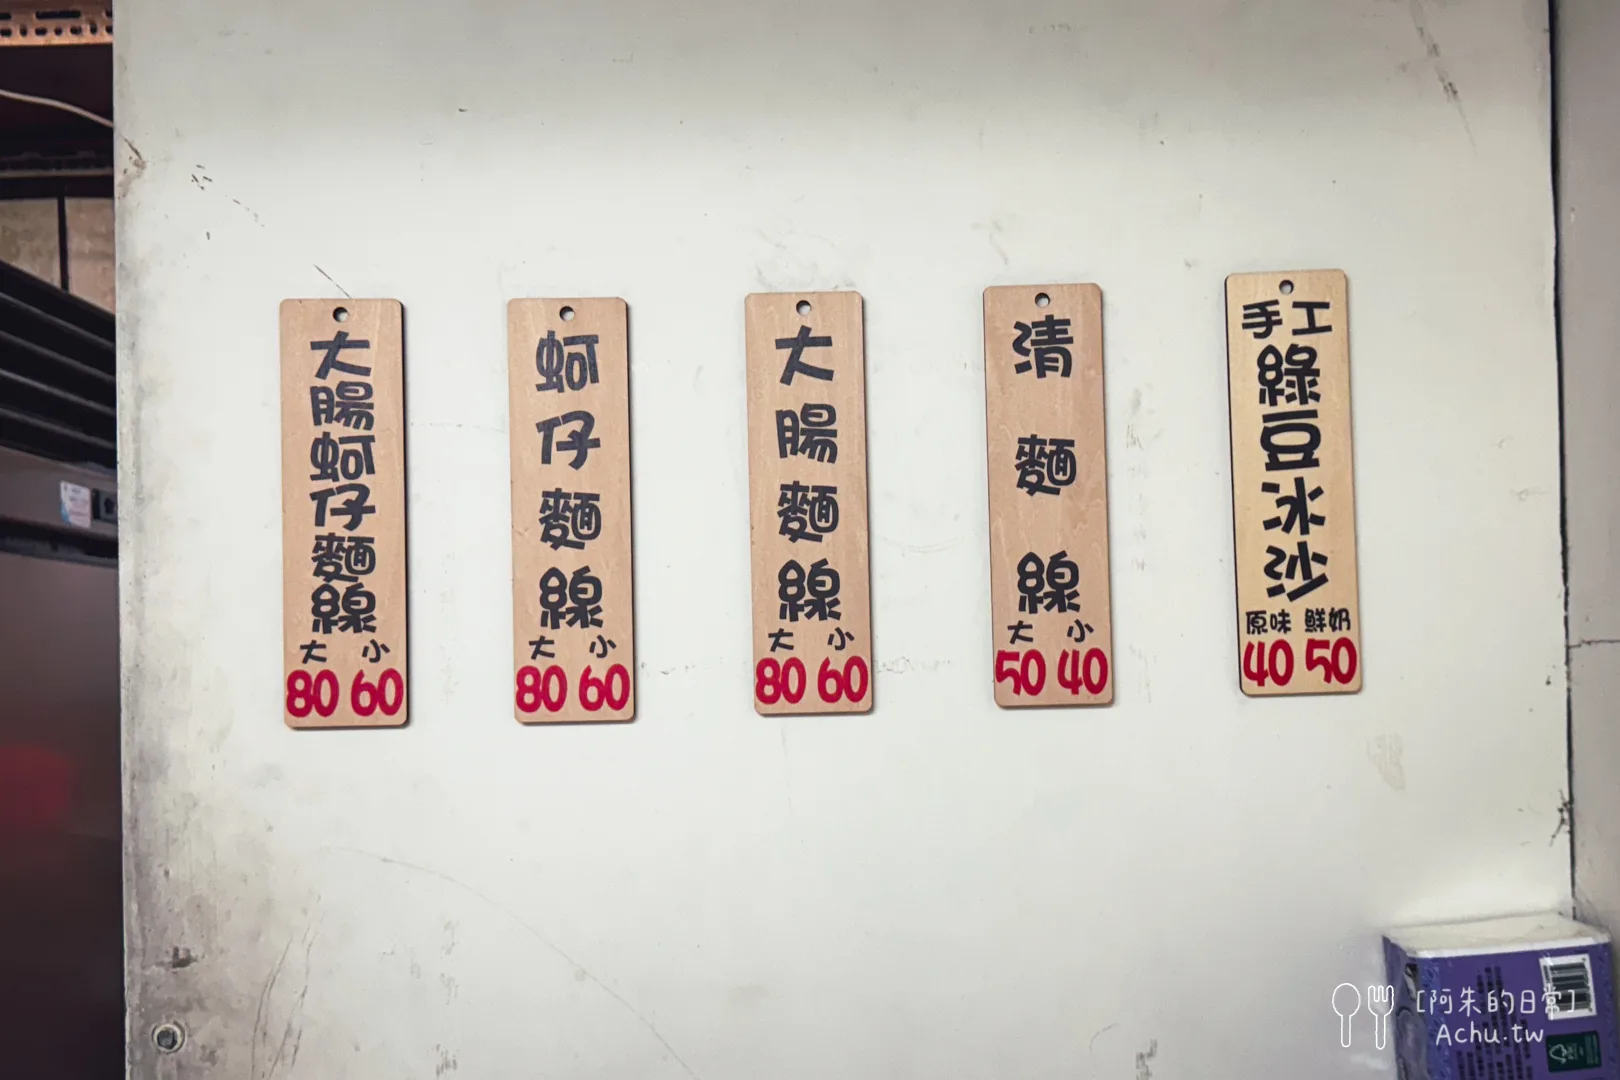 大腸蚵仔麵線
大 小
80 60
蚵仔麵線
大 小
80 60
大腸麵線
大 小
80 60
清麵線
大 小
50 40
手工
綠豆冰沙
原味 鮮奶
40 50
[阿朱的日常]
Achu.tw